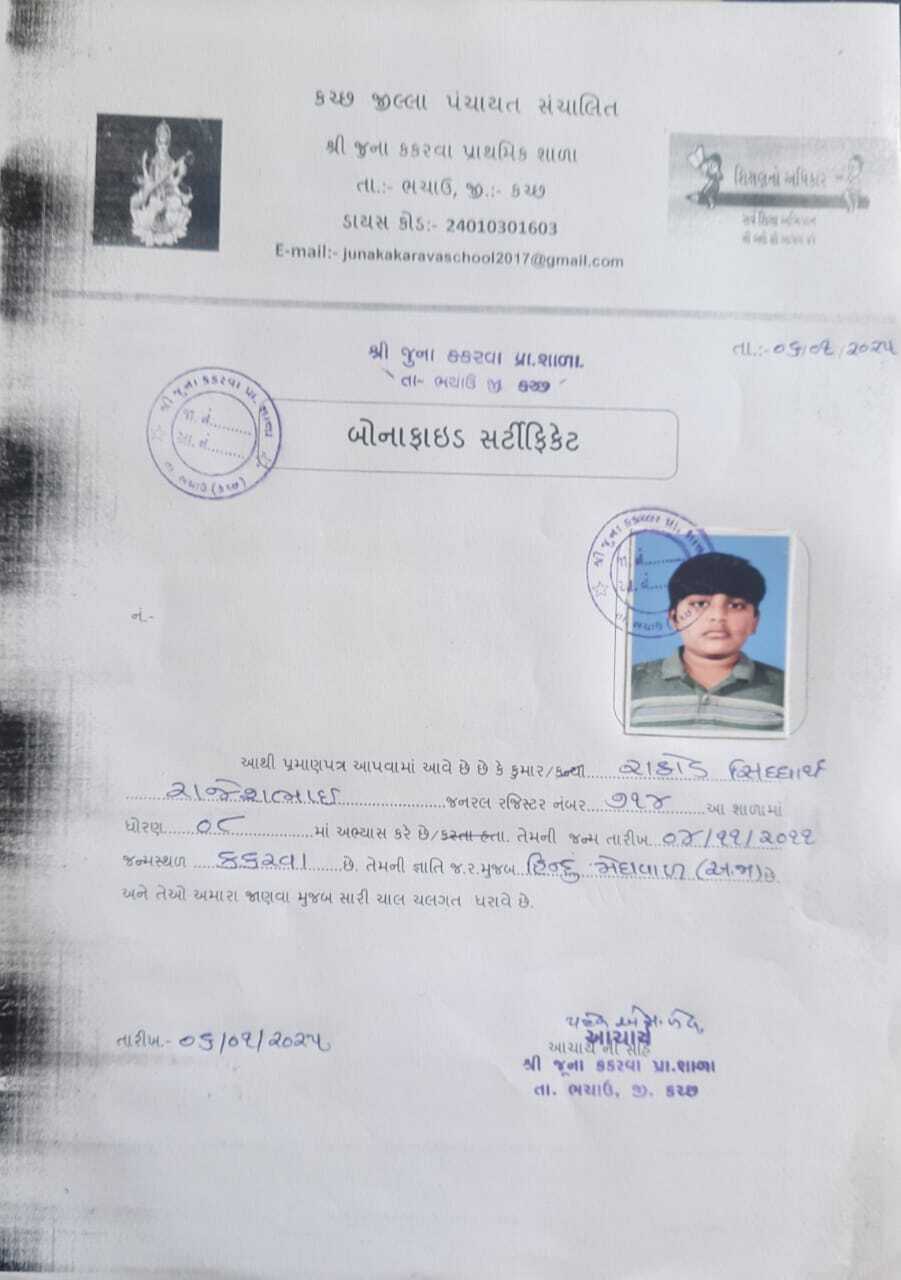 કચ્છ જીલ્લા પંચાયત સંચાલિત
શ્રી જુના કકરવા પ્રાથમિક શાળા
તા.:- ભચાઉ, જી.:- કચ્છ
ડાયસ કોડ:- 24010301603
E-mail:- junakakaravaschool2017@gmail.com
શિક્ષણનો અધિકાર
સર્વ શિક્ષા અભિયાન
તા.:- ૦૬/૦૧/૨૦૨૫
શ્રી જુના કકરવા પ્રા.શાળા.
તા- ભચાઉ જી કચ્છ
શ્રી જુના કકરવા પ્રા. શાળા
જા. નં..........
આ. નં..........
તા. ભચાઉ (કચ્છ)
બોનાફાઇડ સર્ટીફિકેટ
નં.-
આથી પ્રમાણપત્ર આપવામાં આવે છે છે કે કુમાર/કન્યા......રાઠોડ સિધ્ધાર્થ
............રાજેશભાઇ..................જનરલ રજિસ્ટર નંબર....૭૧૪......આ શાળામાં
ધોરણ.....૦૮...............માં અભ્યાસ કરે છે/કરતા હતા. તેમની જન્મ તારીખ..૦૪/૧૧/૨૦૧૧
જન્મસ્થળ ....કકરવા......છે. તેમની જ્ઞાતિ જ.ર.મુજબ હિન્દુ મેઘવાળ (અ.જા) છે.
અને તેઓ અમારા જાણવા મુજબ સારી ચાલ ચલગત ધરાવે છે.
તારીખ.- ૦૬/૦૧/૨૦૨૫
આચાર્ય
આચાર્ય ની સહિ
શ્રી જૂના કકરવા પ્રા.શાળા
તા. ભચાઉ, જી. કચ્છ